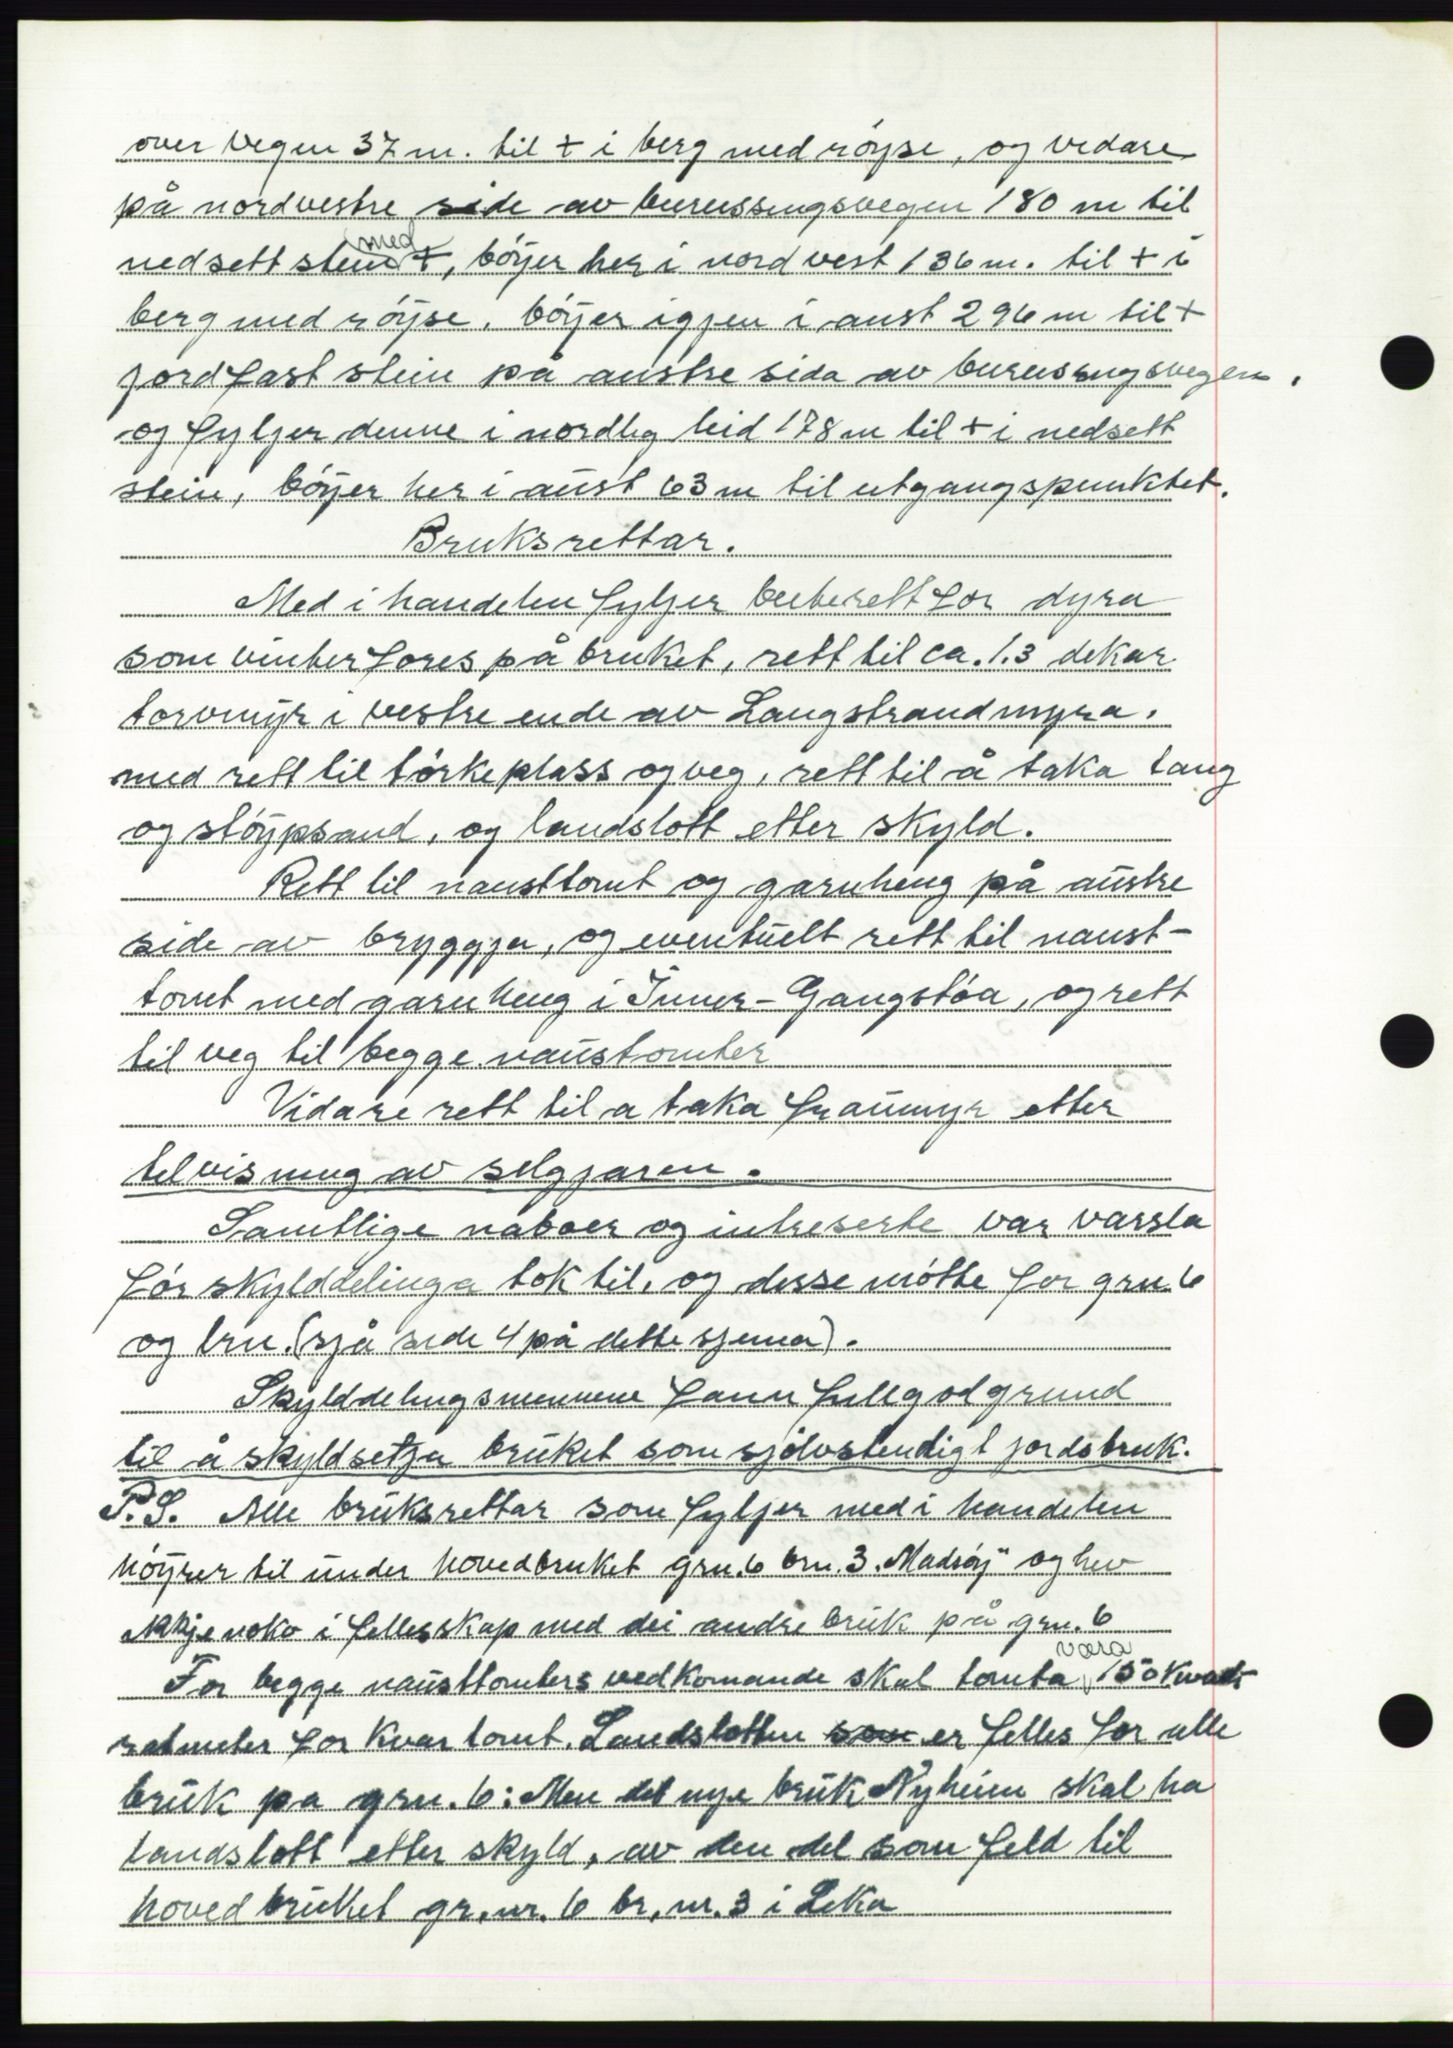 over vegen 37 m. til + i berg med röyse, og vidare
på nordvestre side av bureisingsvegen 180 m til
nedsett stein med +, böyer her i nord vest 136 m. til + i
berg med röyse, böyer igjen i aust 296 m til +
jordfast stein på austre sida av bureisingsvegen,
og fylgjer denne i nordleg leid 178 m til + i nedsett
stein, böyer her i aust 63 m til utgangspunktet.
Bruksrettar.
Med i handelen fylgjer beiterett for dyra
som vinterfores på bruket, rett til ca. 1.3 dekar
torvmyr i vestre ende av Langstrandmyra,
med rett til törkeplass og veg, rett til å taka tang
og stöypsand, og landslott etter skyld.
Rett til nausttomt og garnheng på austre
side av bryggja, og eventuelt rett til naust-
tomt med garnheng i Inner-Gangstöa, og rett
til veg til begge naustomter
Vidare rett til a taka fraumyr etter
tilvising av selgjaren.
Samtlige naboer og intreserte var varsla
för skylddelinga tok til, og desse mötte for grn. 6
og brn. (sjå side 4 på dette sjema).
Skylddelingsmennene fann fullgod grund
til å skyldsetja bruket som sjölvstendigt jordsbruk.
P.S. Alle bruksrettar som fylgjer med i handelen
höyrer til under hovedbruket grn. 6 brn. 3. Madsöy" og hev
ikkje noko i fellesskap med dei andre bruk på grn. 6
For begge nausttomters vedkomande skal tomta vara 150 kvad-
ratmeter for kvar tomt. Landslotten som er felles for alle
bruk pa grn. 6: Men det nye bruk Nyheim skal ha
landslott etter skyld, av den del som feld til
hovedbruket gr. nr. 6 br. nr. 3 i Leka